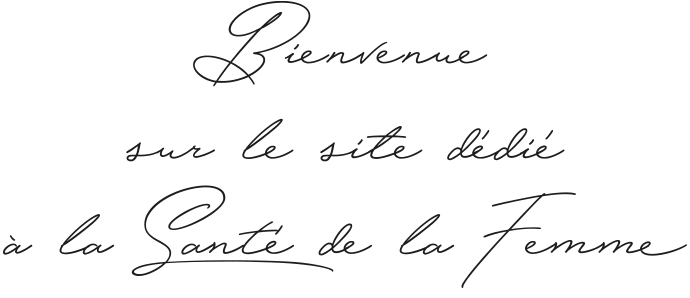 Bienvenue
sur le site dédié
à la Santé de la Femme